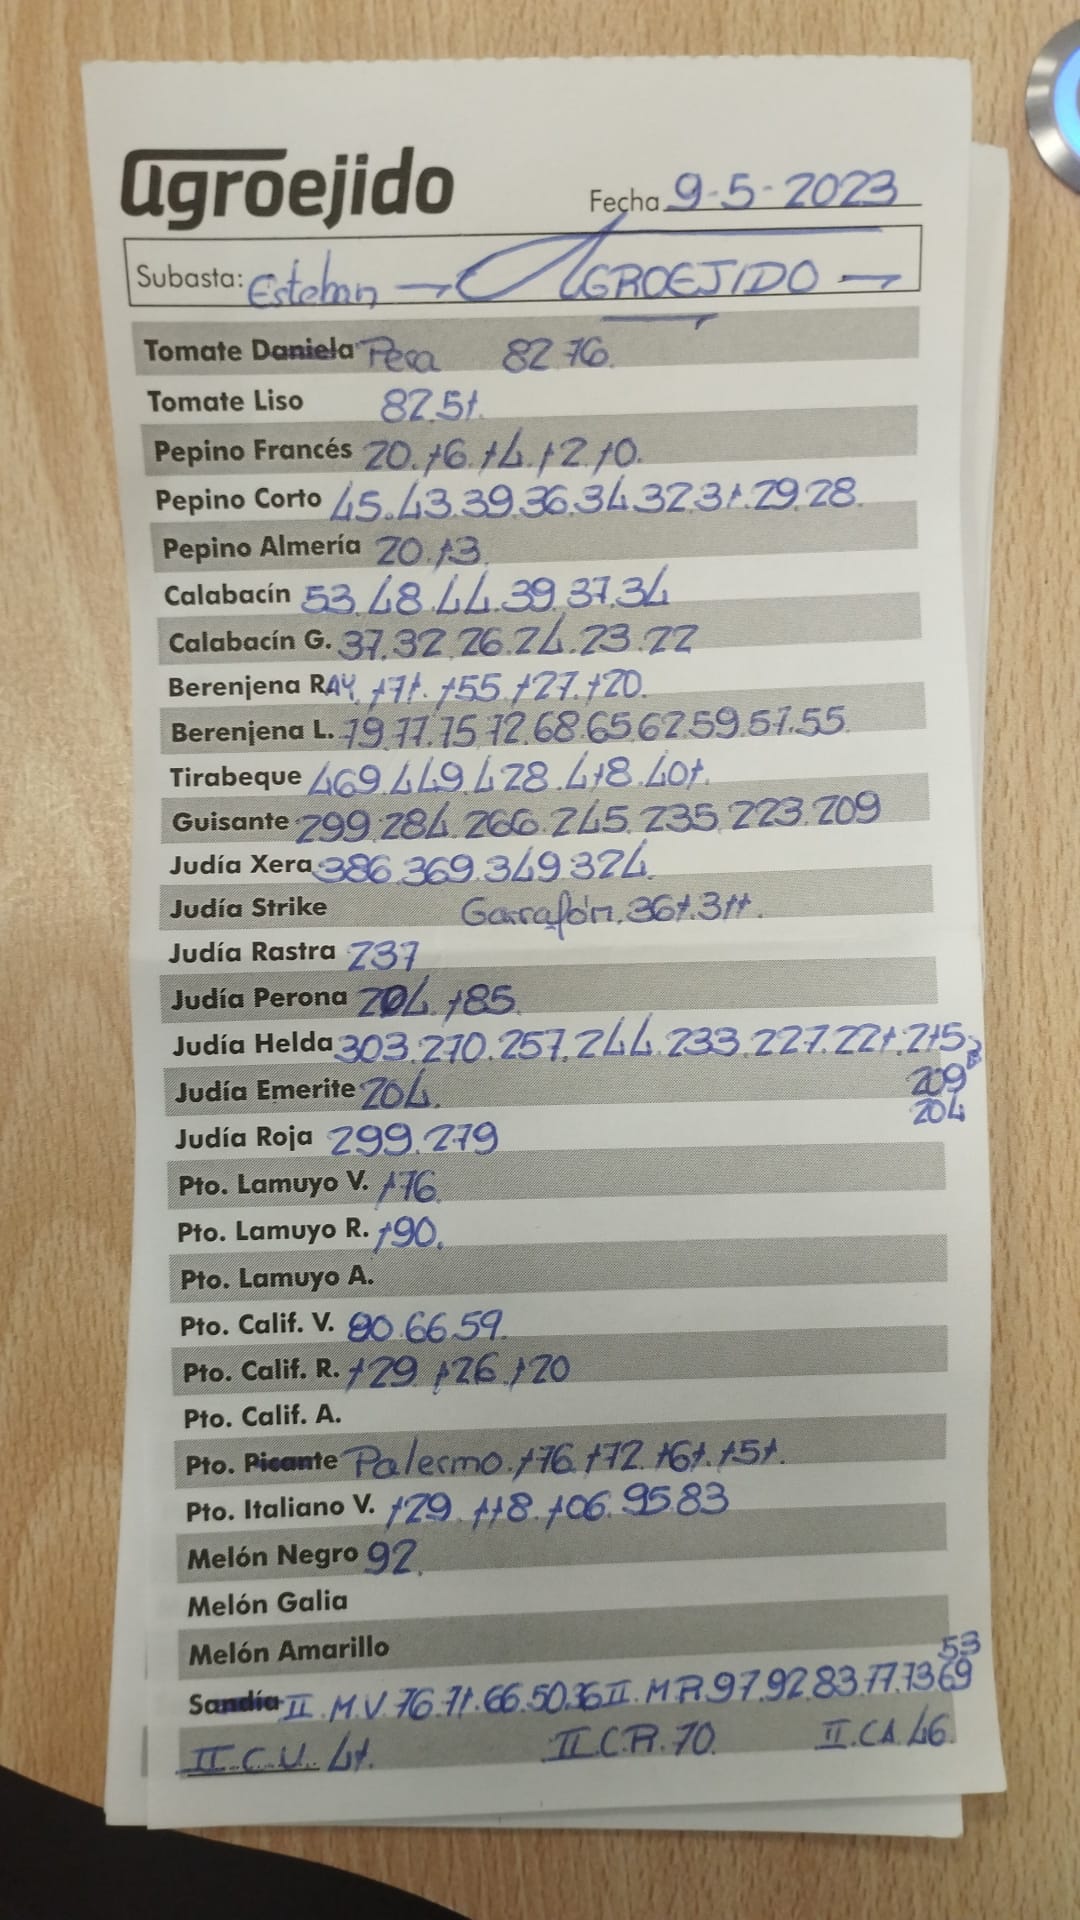 agroejido
Fecha 9-5-2023
Subasta: Esteban → AGROEJIDO —
Tomate Daniela Pera 82.76.
Tomate Liso 82.51.
Pepino Francés 20.16.14.12.10.
Pepino Corto 45.43.39.36.34.32.31.29.28.
Pepino Almería 20.13.
Calabacín 53.48.44.39.37.34
Calabacín G. 37.32.26.24.23.22
Berenjena RAY. 171.155.127.120.
Berenjena L. 79.77.75.72.68.65.62.59.57.55.
Tirabeque 469.449.428.418.401.
Guisante 299.284.266.245.235.223.209
Judía Xera 386.369.349.324.
Judía Strike Garrafón.361.311.
Judía Rastra 237
Judía Perona 204.185.
Judía Helda 303.270.257.244.233.227.221.215
209
Judía Emerite 204.
204
Judía Roja 299.279
Pto. Lamuyo V. 176.
Pto. Lamuyo R. 190.
Pto. Lamuyo A.
Pto. Calif. V. 80.66.59.
Pto. Calif. R. 129.126.120
Pto. Calif. A.
Pto. Picante Palermo.176.172.161.151.
Pto. Italiano V. 129.118.106.95.83
Melón Negro 92.
Melón Galia
Melón Amarillo
53
Sandía II.M.V.76.71.66.50.36 II.M.R.97.92.83.77.73.69
II.C.V. 41. II.C.R.70. II.CA.46.